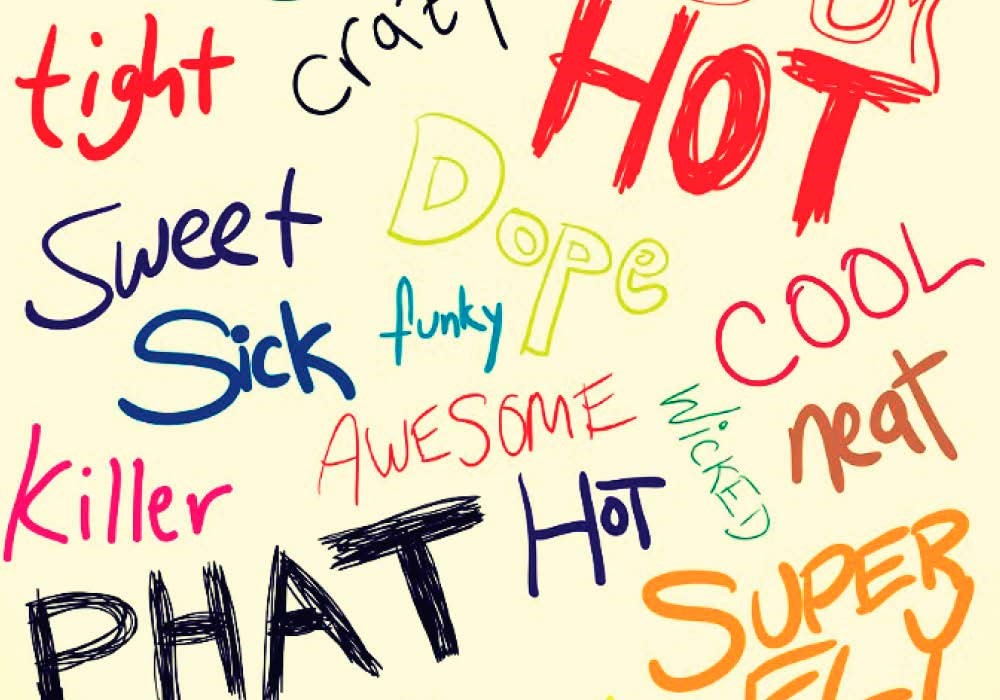 tight
crazy
HOT
Sweet
Dope
Sick
funky
COOL
AWESOME
WICKED
neat
killer
HOT
PHAT
SUPER
FLY